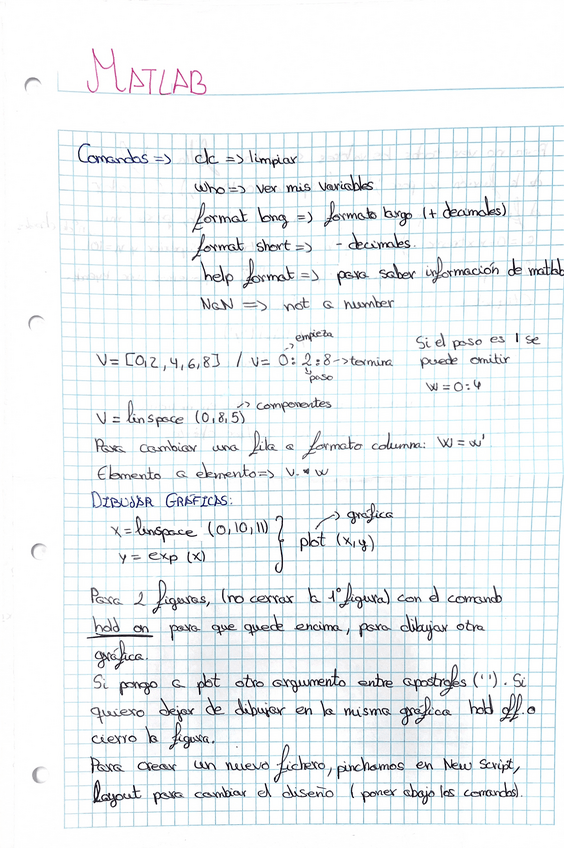 MATLAB
Comandos => clc => limpiar
who => ver mis variables
format long => formato largo (+ decimales)
format short => - decimales.
help format => para saber información de matlab
NaN => not a number
empieza
V = [0,2,4,6,8] / V = 0:2:8 -> termina
paso
Si el paso es 1 se
puede omitir
W = 0:4
V = linspace (0,8,5) -> componentes
Para cambiar una fila a formato columna: W = w'
Elemento a elemento => v.*w
DIBUJAR GRÁFICAS:
x = linspace (0,10,11)
y = exp (x)
} plot (x,y) -> gráfica
Para 2 figuras, (no cerrar la 1º figura) con el comando
hold on para que quede encima, para dibujar otra
gráfica.
Si pongo a plot otro argumento entre apostrofes (''). Si
quiero dejar de dibujar en la misma gráfica hold off o
cierro la figura.
Para crear un nuevo fichero, pinchamos en New Script,
Layout para cambiar el diseño (poner abajo los comandos).